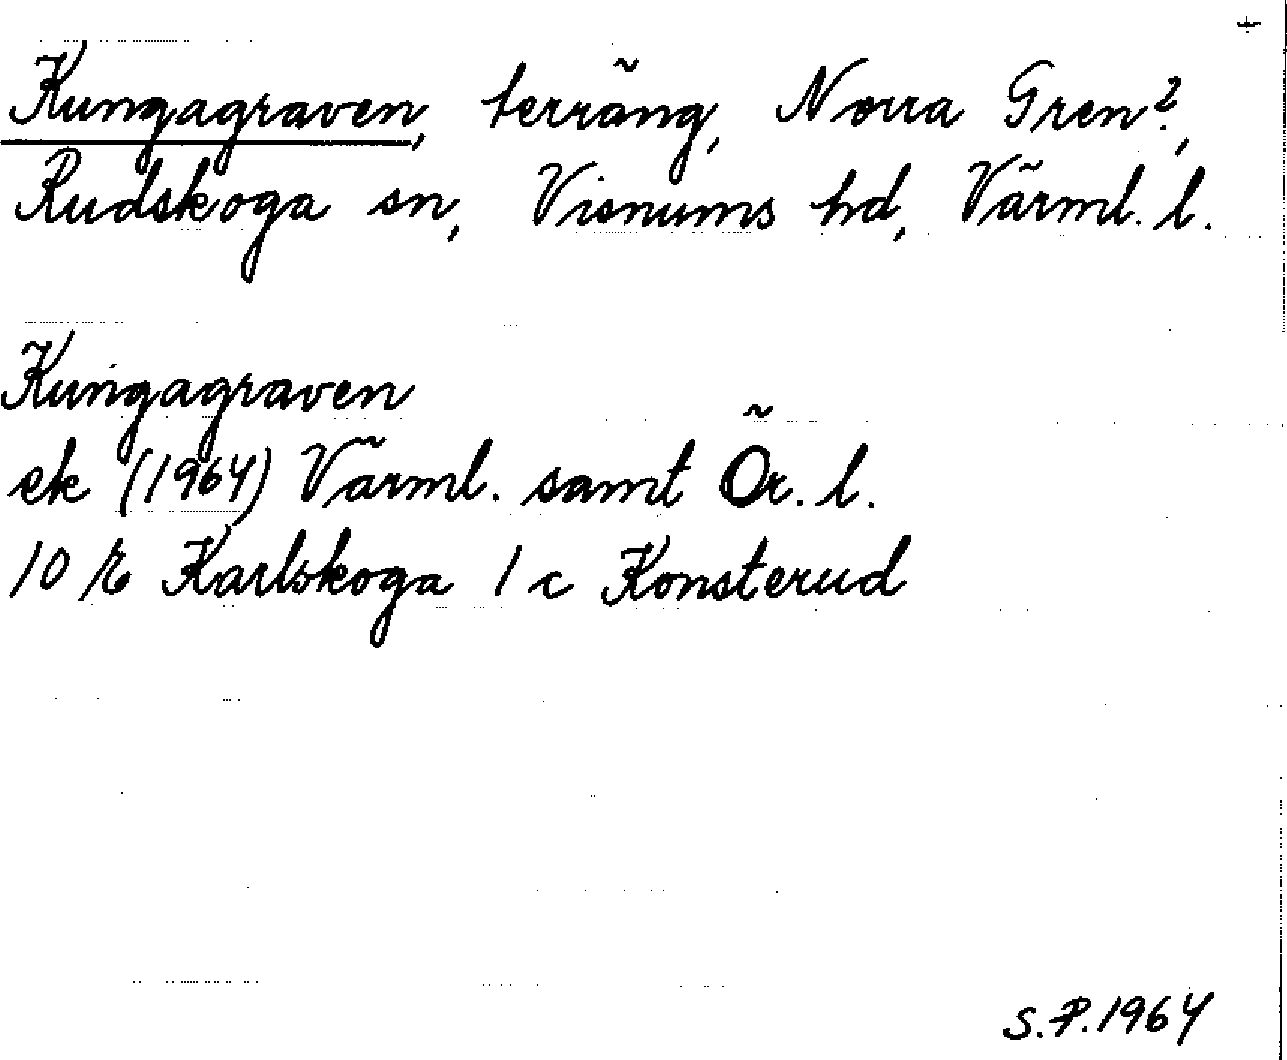 +
Kungagraven, terräng, Norra Gren?,
Rudskoga sn, Visnums hd, Värml. l.
Kungagraven
ek (1964) Värml. samt Ör. l.
10 E Karlskoga 1 c Konsterud
S.P. 1964